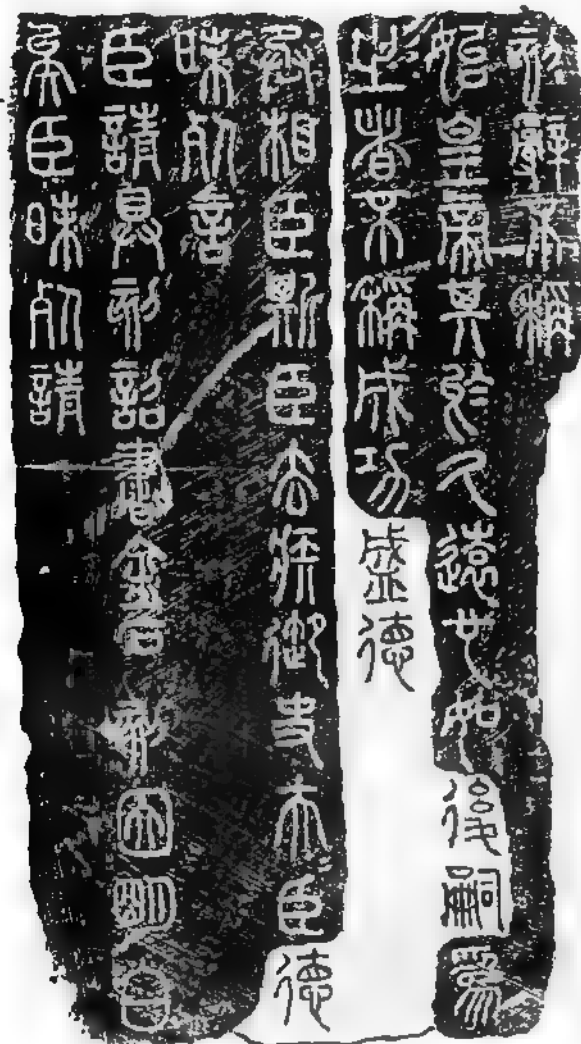 刻辭不稱
始皇帝其於久遠也如後嗣為
之者不稱成功盛德
丞相臣斯臣去疾御史夫臣德
昧死言
臣請具刻詔書金石刻因明白
矣臣昧死請